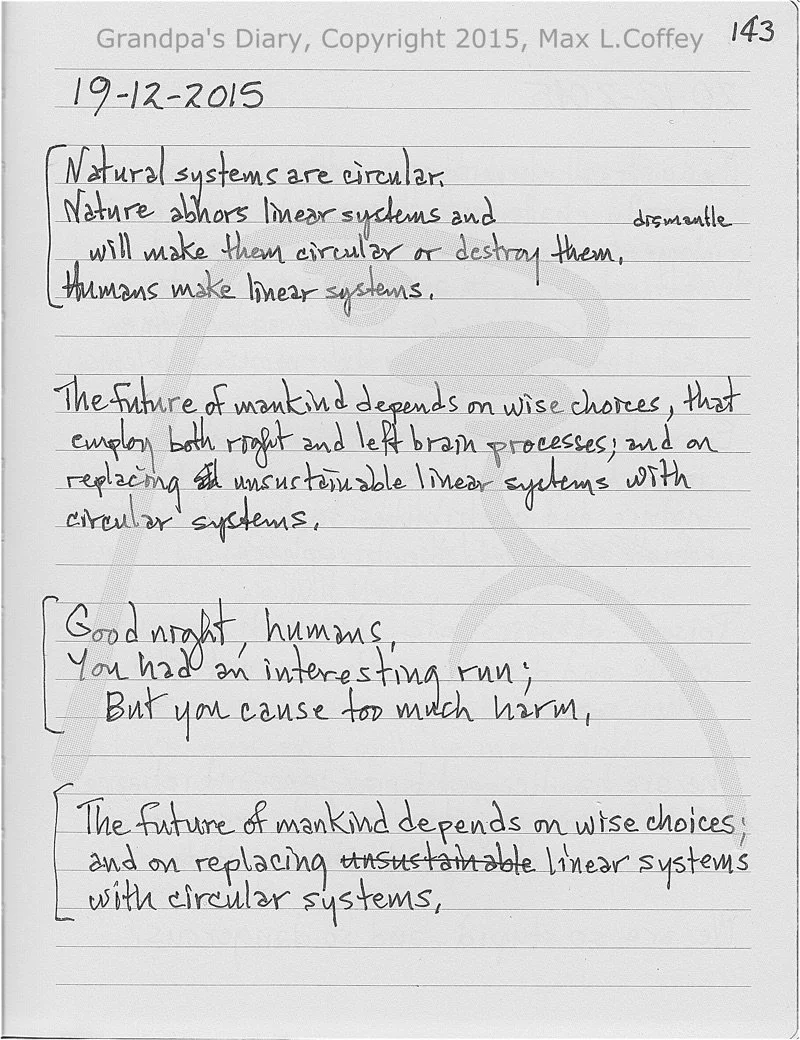 143
Grandpa's Diary, Copyright 2015, Max L.Coffey
19-12-2015
Natural systems are circular.
Nature abhors linear systems and dismantle
will make them circular or destroy them.
Humans make linear systems.
The future of mankind depends on wise choices, that
employ both right and left brain processes; and on
replacing unsustainable linear systems with
circular systems.
Good night, humans.
You had an interesting run;
But you cause too much harm.
The future of mankind depends on wise choices;
and on replacing unsustainable linear systems
with circular systems.